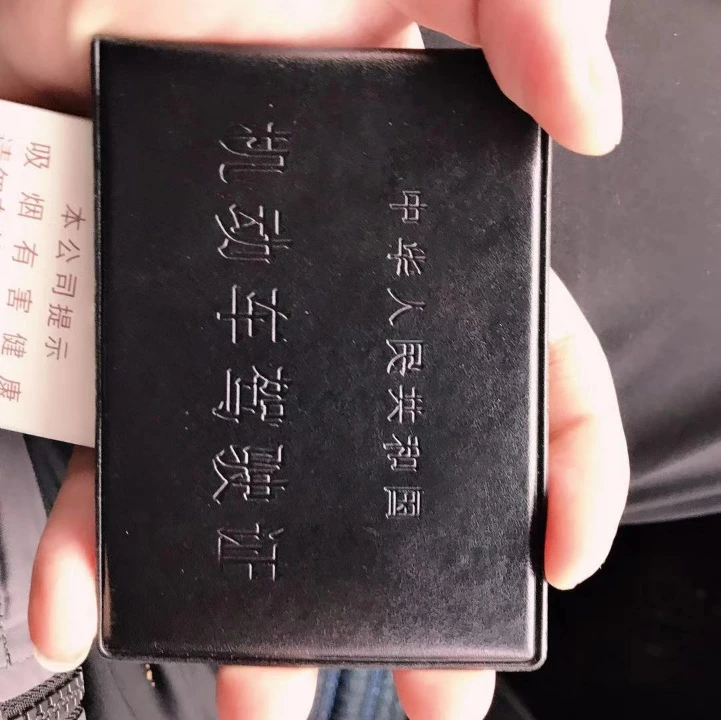 中华人民共和国
机动车驾驶证
本公司提示
吸烟有害健康